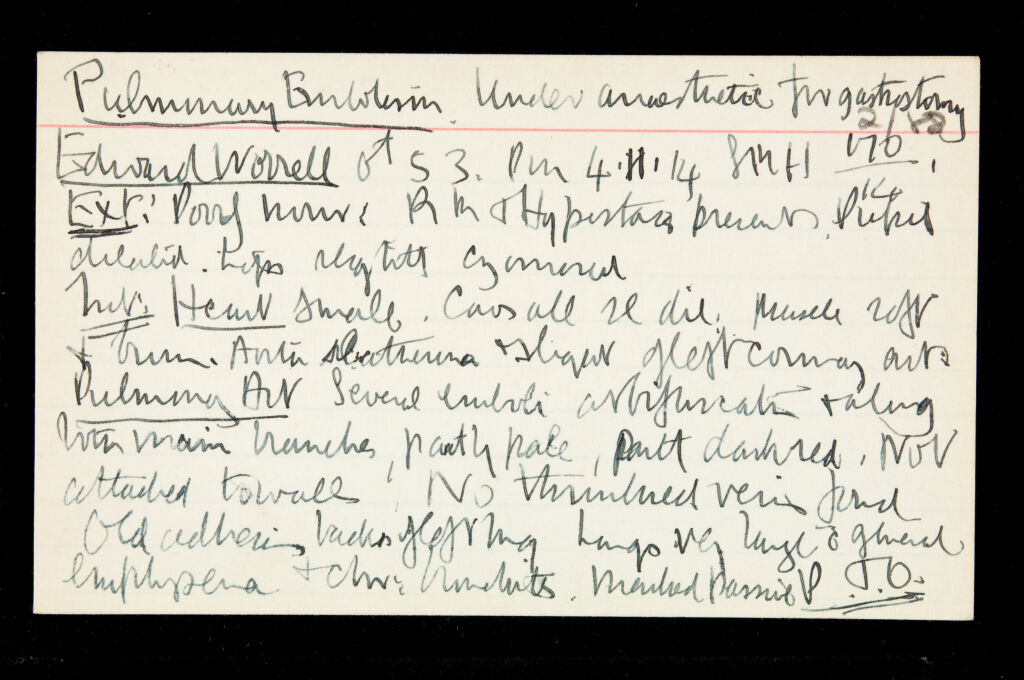 Pulmonary Embolism. Under anaesthetic for gastrostomy
2/12
Edward Worrell aet 53. Pm 4.11.14 170/14
Ext: Poorly nour: R M & Hypostasis present. Pupils
dilated. Lips slightly cyanosed
Int: Heart small. Cavs all sl dil. Muscle soft
& brown. Aorta sl atheroma & slight of left coronary art:
Pulmonary Art Several emboli at bifurcation & along
both main branches, partly pale, partly dark red. Not
attached to walls. No thrombosed veins found
Old adhesions back of left lung Lungs very large c̄ general
emphysema & chr: bronchitis. Marked passive